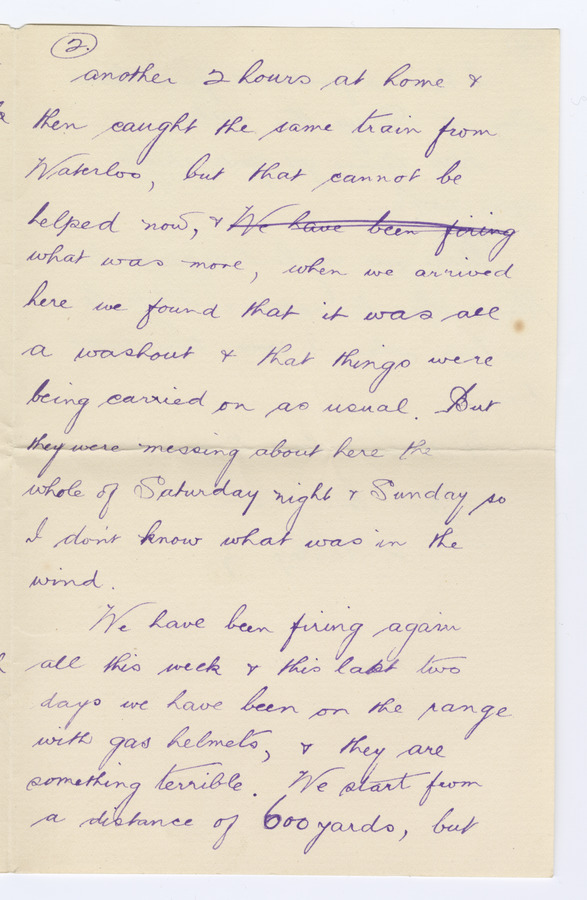 2.
another 2 hours at home &
then caught the same train from
Waterloo, but that cannot be
helped now, & We have been firing
what was more, when we arrived
here we found that it was all
a washout & that things were
being carried on as usual. But
they were messing about here the
whole of Saturday night & Sunday so
I don't know what was in the
wind.
We have been firing again
all this week & this last two
days we have been on the range
with gas helmets, & they are
something terrible. We start from
a distance of 600 yards, but